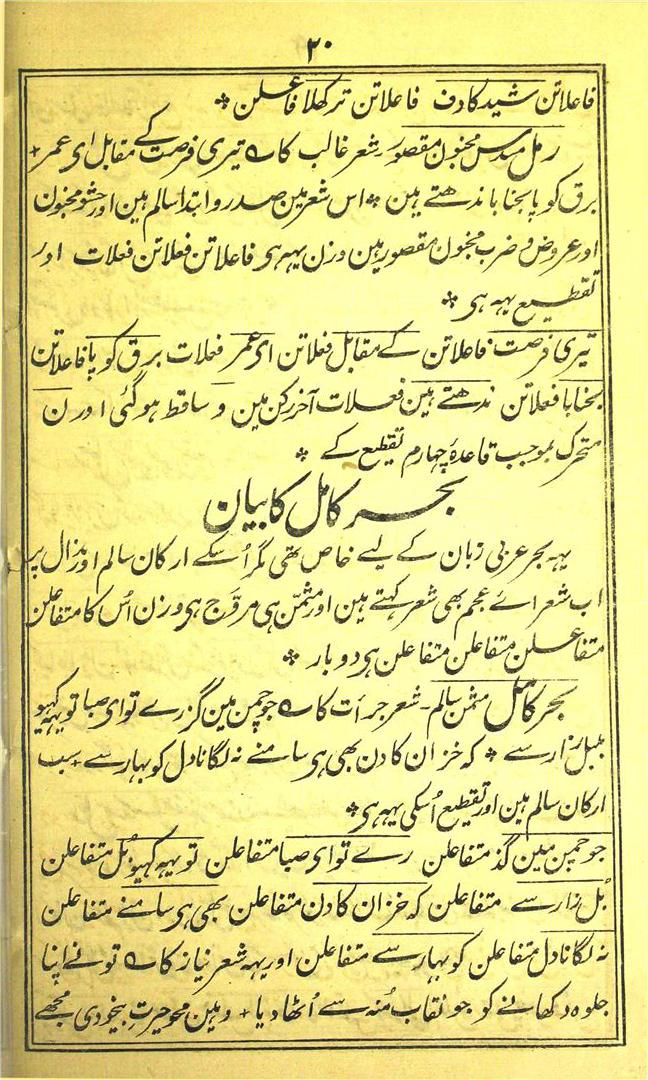 ۲۰
فاعلاتن شید کا دف فاعلاتن تر کھلا فاعلن ٭
رمل مسدس مخبون مقصور شعر غالب کا ؎ تیری فرصت کے مقابل ای عمر +
برق کو پابحنا باندھتے ہین ٭ اس شعر مین صدر و ابتدا سالم ہین اور حشو مخبون
اور عروض و ضرب مخبون مقصور ہین وزن یہہ ہی فاعلاتن فعلاتن فعلات اور
تقطیع یہہ ہی ٭
تیری فرصت فاعلاتن کے مقابل فعلاتن ای عمر فعلات برق کو پا فاعلاتن
بحنا با فعلاتن ندھتے ہین فعلات آخر رکن مین و ساقط ہو گئی اور ن
متحرک بموجب قاعدہ چہارم تقطیع کے ٭
بحر کامل کا بیان
یہہ بحر عربی زبان کے لیے خاص تھی مگر اُسکے ارکان سالم اور مذال پر
اب شعرائے عجم بھی شعر کہتے ہین اور مثمّن ہی مروّج ہی وزن اُس کا متفاعلن
متفاعلن متفاعلن متفاعلن ہی دو بار ٭
بحر کامل مثمن سالم - شعر جرأت کا ؎ جو چمن مین گزرے تو ای صبا تو یہہ کہیو
بلبل زار سے ٭ کہ خزان کا دن بھی ہی سامنے نہ لگانا دل کو بہار سے + سب
ارکان سالم ہین اور تقطیع اُسکی یہہ ہی ٭
جو چمن مین گذ متفاعلن رے تو ای صبا متفاعلن تو یہہ کہیو بُل متفاعلن
بُل زار سے متفاعلن کہ خزان کا دن متفاعلن بھی ہی سامنے متفاعلن
نہ لگانا دل متفاعلن کو بہار سے متفاعلن اور یہہ شعر نیاز کا ؎ تو نے اپنا
جلوہ دکھانے کو جو نقاب مُنہ سے اُٹھا دیا + وہین محو حیرت بیخودی مجھے